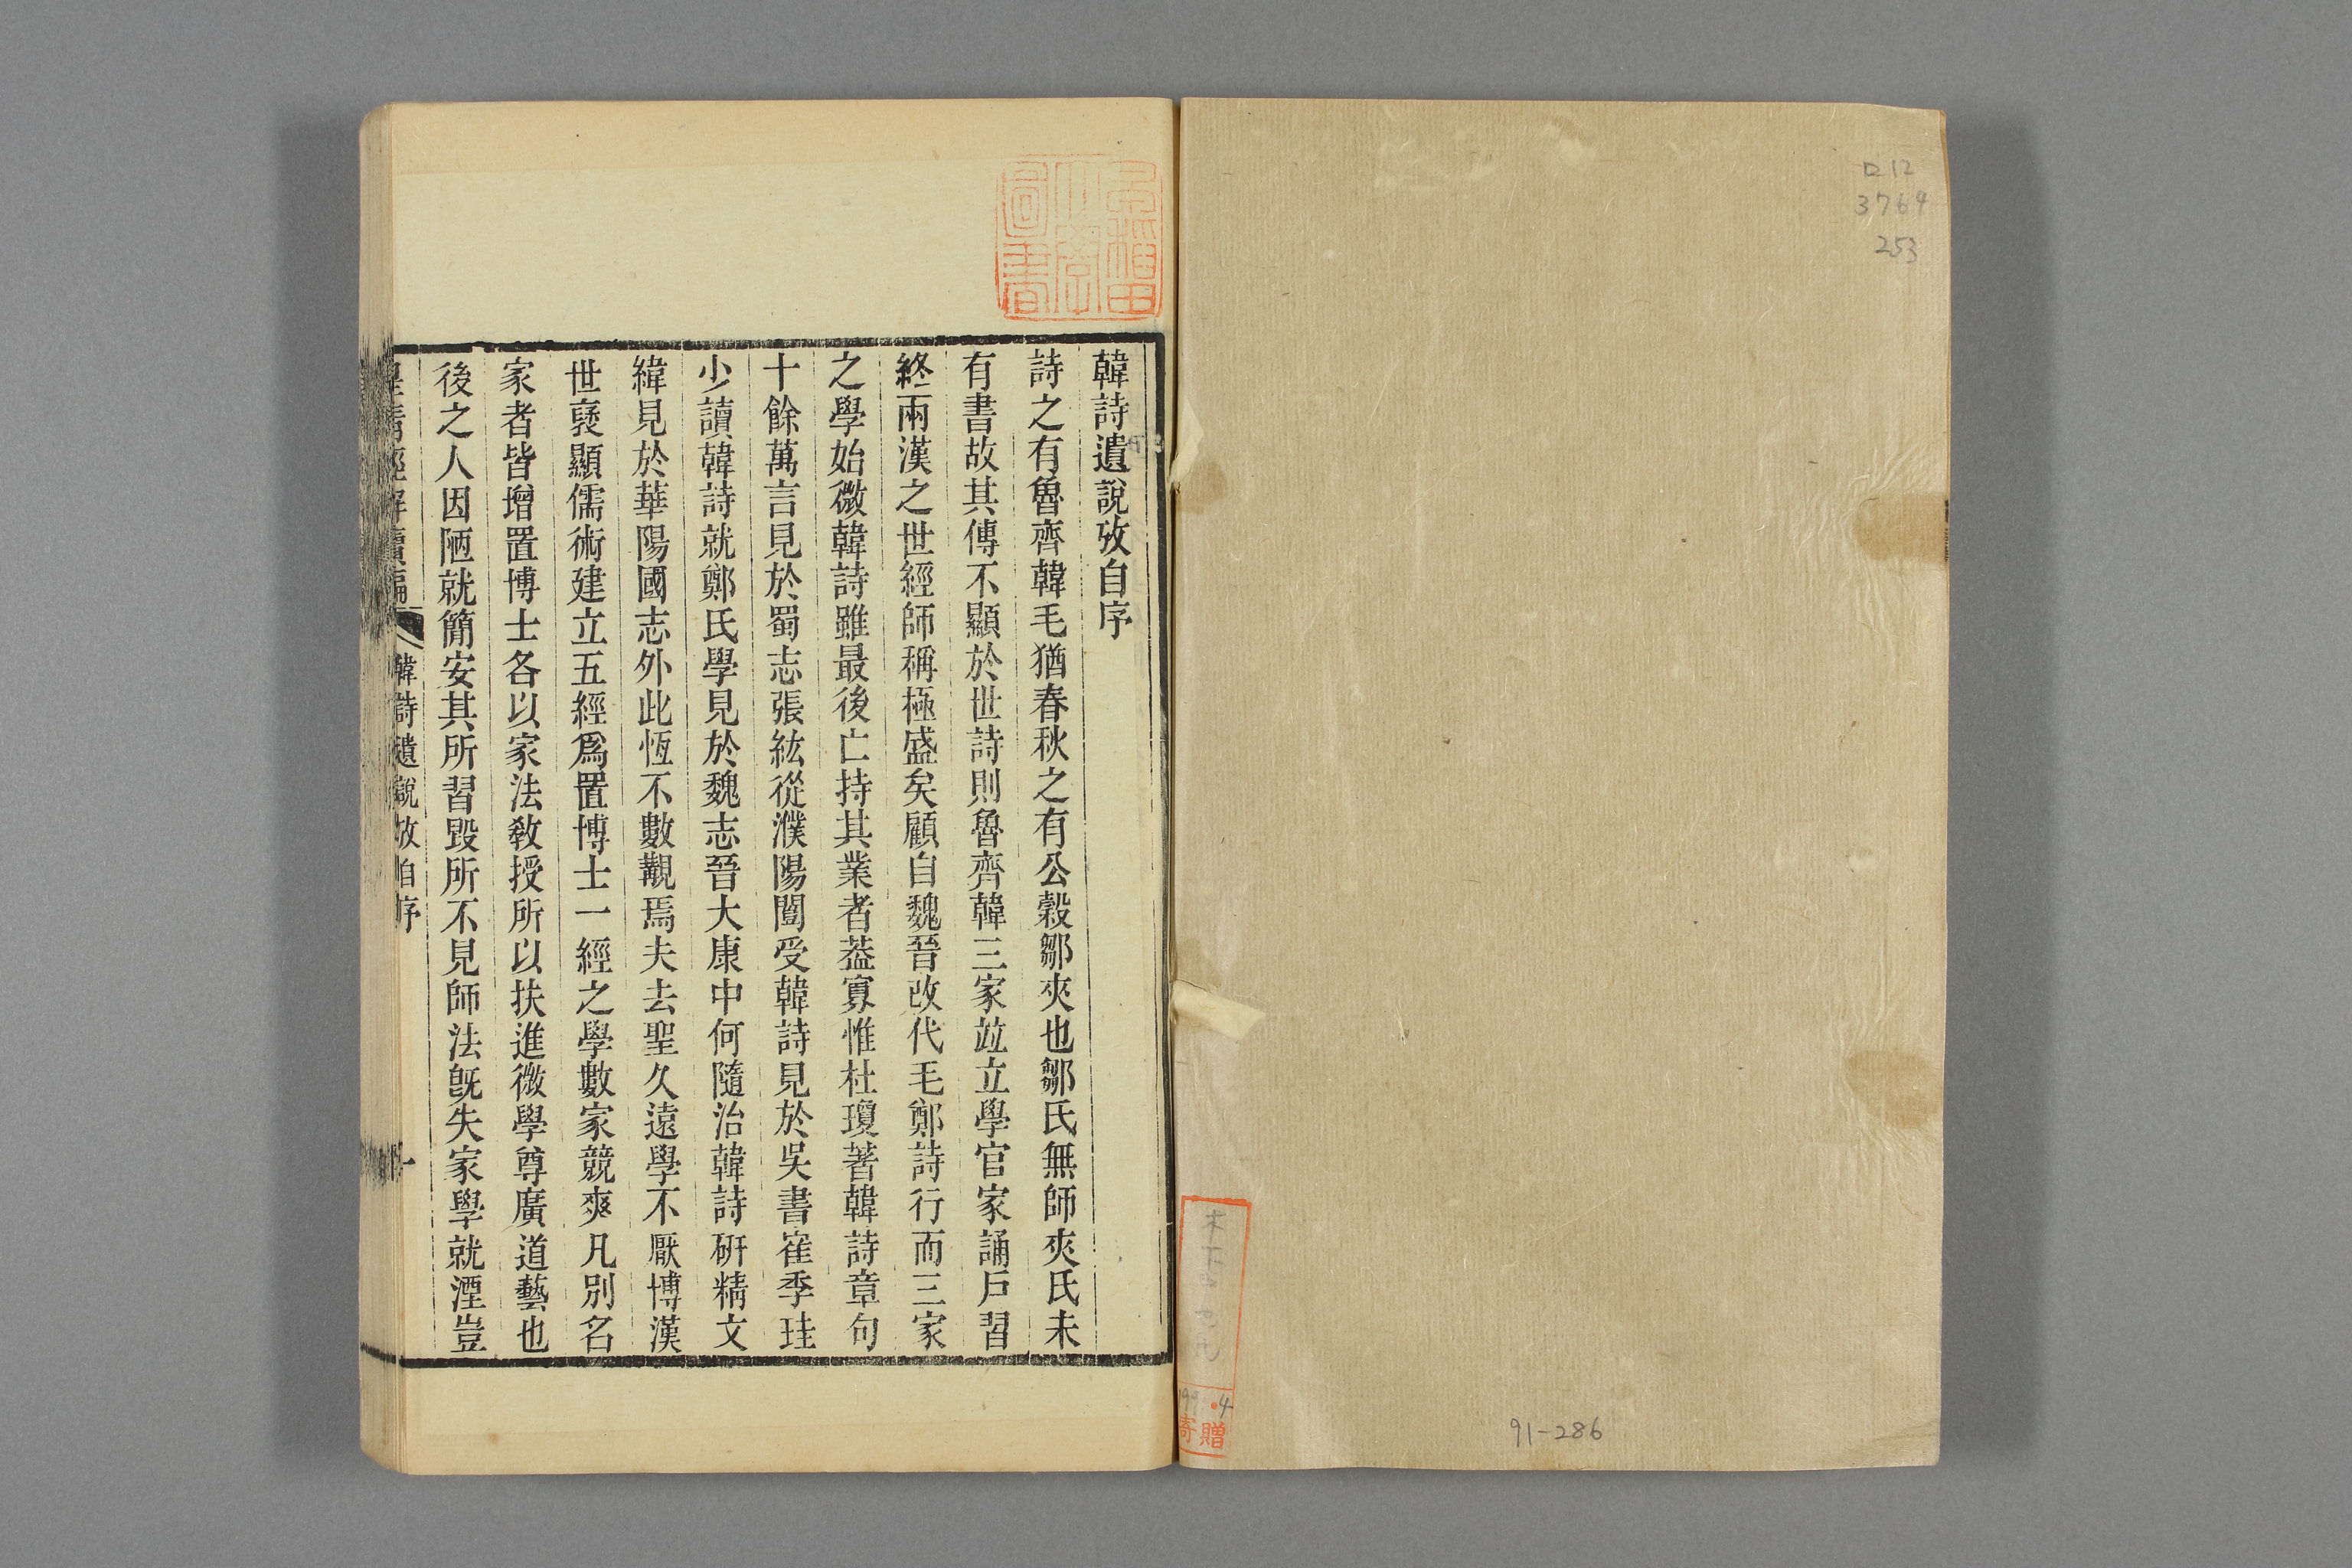 ロ12
3764
253
91-286
4
寄贈
早稲田
大学
図書
韓詩遺說攷自序
詩之有魯齊韓毛猶春秋之有公穀鄒夾也鄒氏無師夾氏未
有書故其傳不顯於世詩則魯齊韓三家竝立學官家誦戶習
終兩漢之世經師稱極盛矣顧自魏晉改代毛鄭詩行而三家
之學始微韓詩雖最後亡持其業者葢寡惟杜瓊著韓詩章句
十餘萬言見於蜀志張紘從濮陽闓受韓詩見於吳書崔季珪
少讀韓詩就鄭氏學見於魏志晉大康中何隨治韓詩硏精文
緯見於華陽國志外此恆不數覯焉夫去聖久遠學不厭博漢
世襃顯儒術建立五經爲置博士一經之學數家競爽凡別名
家者皆增置博士各以家法敎授所以扶進微學尊廣道藝也
後之人因陋就簡安其所習毀所不見師法旣失家學就湮豈
皇清經解續編
韓詩遺說攷自序
一